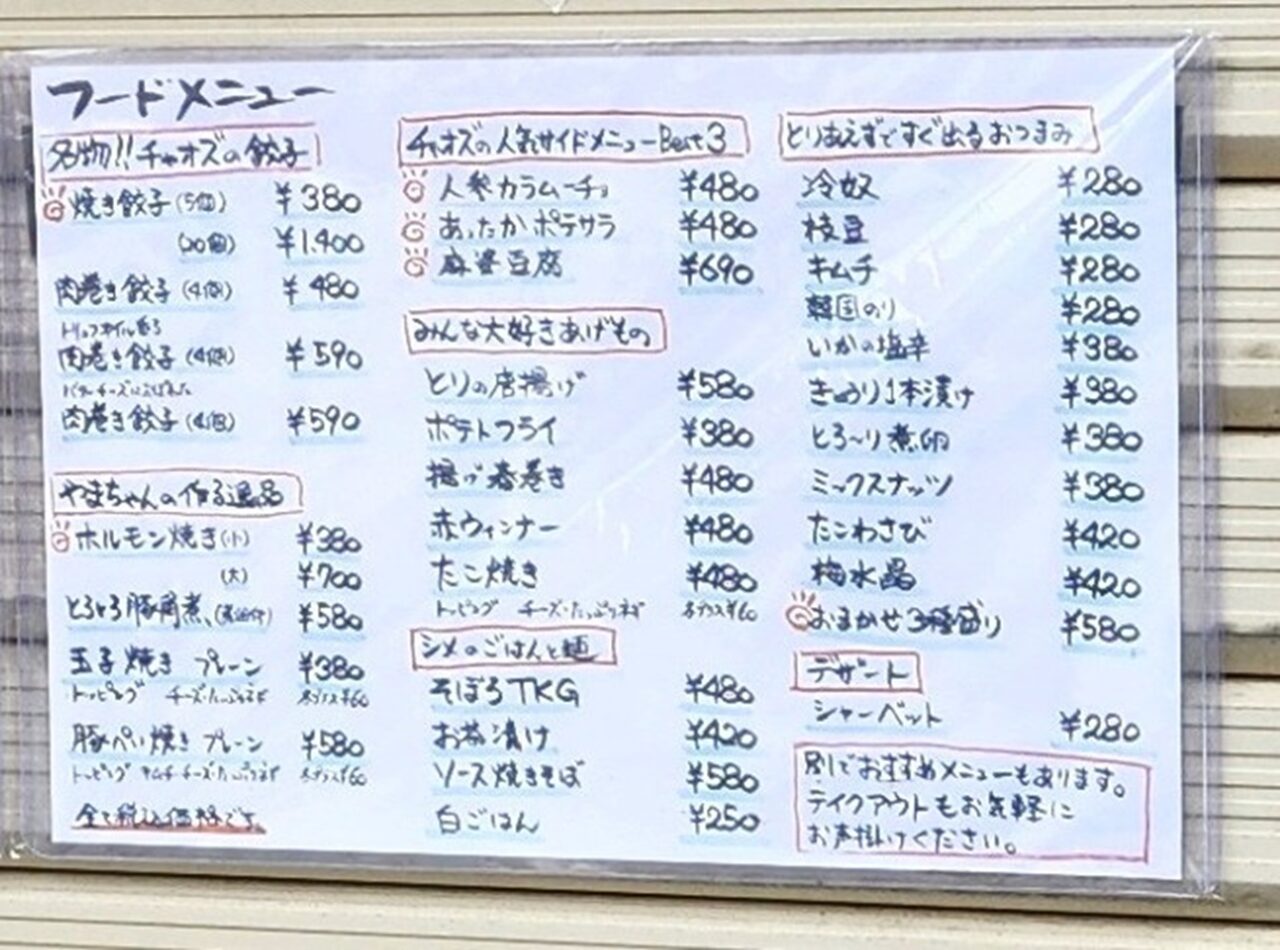 フードメニュー
名物!!チャオズの餃子
焼き餃子(5個) ¥380
(20個) ¥1,400
肉巻き餃子(4個) ¥480
トリュフオイル香る
肉巻き餃子(4個) ¥590
バターチーズ
肉巻き餃子(4個) ¥590
やまちゃんの作る逸品
ホルモン焼き(小) ¥380
(大) ¥700
とろとろ豚角煮 ¥580
玉子焼き プレーン ¥380
トッピング チーズ・たっぷりネギ 各プラス¥60
豚ぺい焼き プレーン ¥580
トッピング キムチ・チーズ・たっぷりネギ 各プラス¥60
全て税込価格です。
チャオズの人気サイドメニューBest3
人参カラムーチョ ¥480
あったかポテサラ ¥480
麻婆豆腐 ¥690
みんな大好きあげもの
とりの唐揚げ ¥580
ポテトフライ ¥380
揚げ春巻き ¥480
赤ウィンナー ¥480
たこ焼き ¥480
トッピング チーズ・たっぷりネギ 各プラス¥60
シメのごはんと麺
そぼろTKG ¥480
お茶漬け ¥420
ソース焼きそば ¥580
白ごはん ¥250
とりあえずですぐ出るおつまみ
冷奴 ¥280
枝豆 ¥280
キムチ ¥280
韓国のり ¥280
いかの塩辛 ¥380
きゅうり1本漬け ¥380
とろ〜り煮卵 ¥380
ミックスナッツ ¥380
たこわさび ¥420
梅水晶 ¥420
おまかせ3種盛り ¥580
デザート
シャーベット ¥280
別でおすすめメニューもあります。
テイクアウトもお気軽に
お声掛けください。